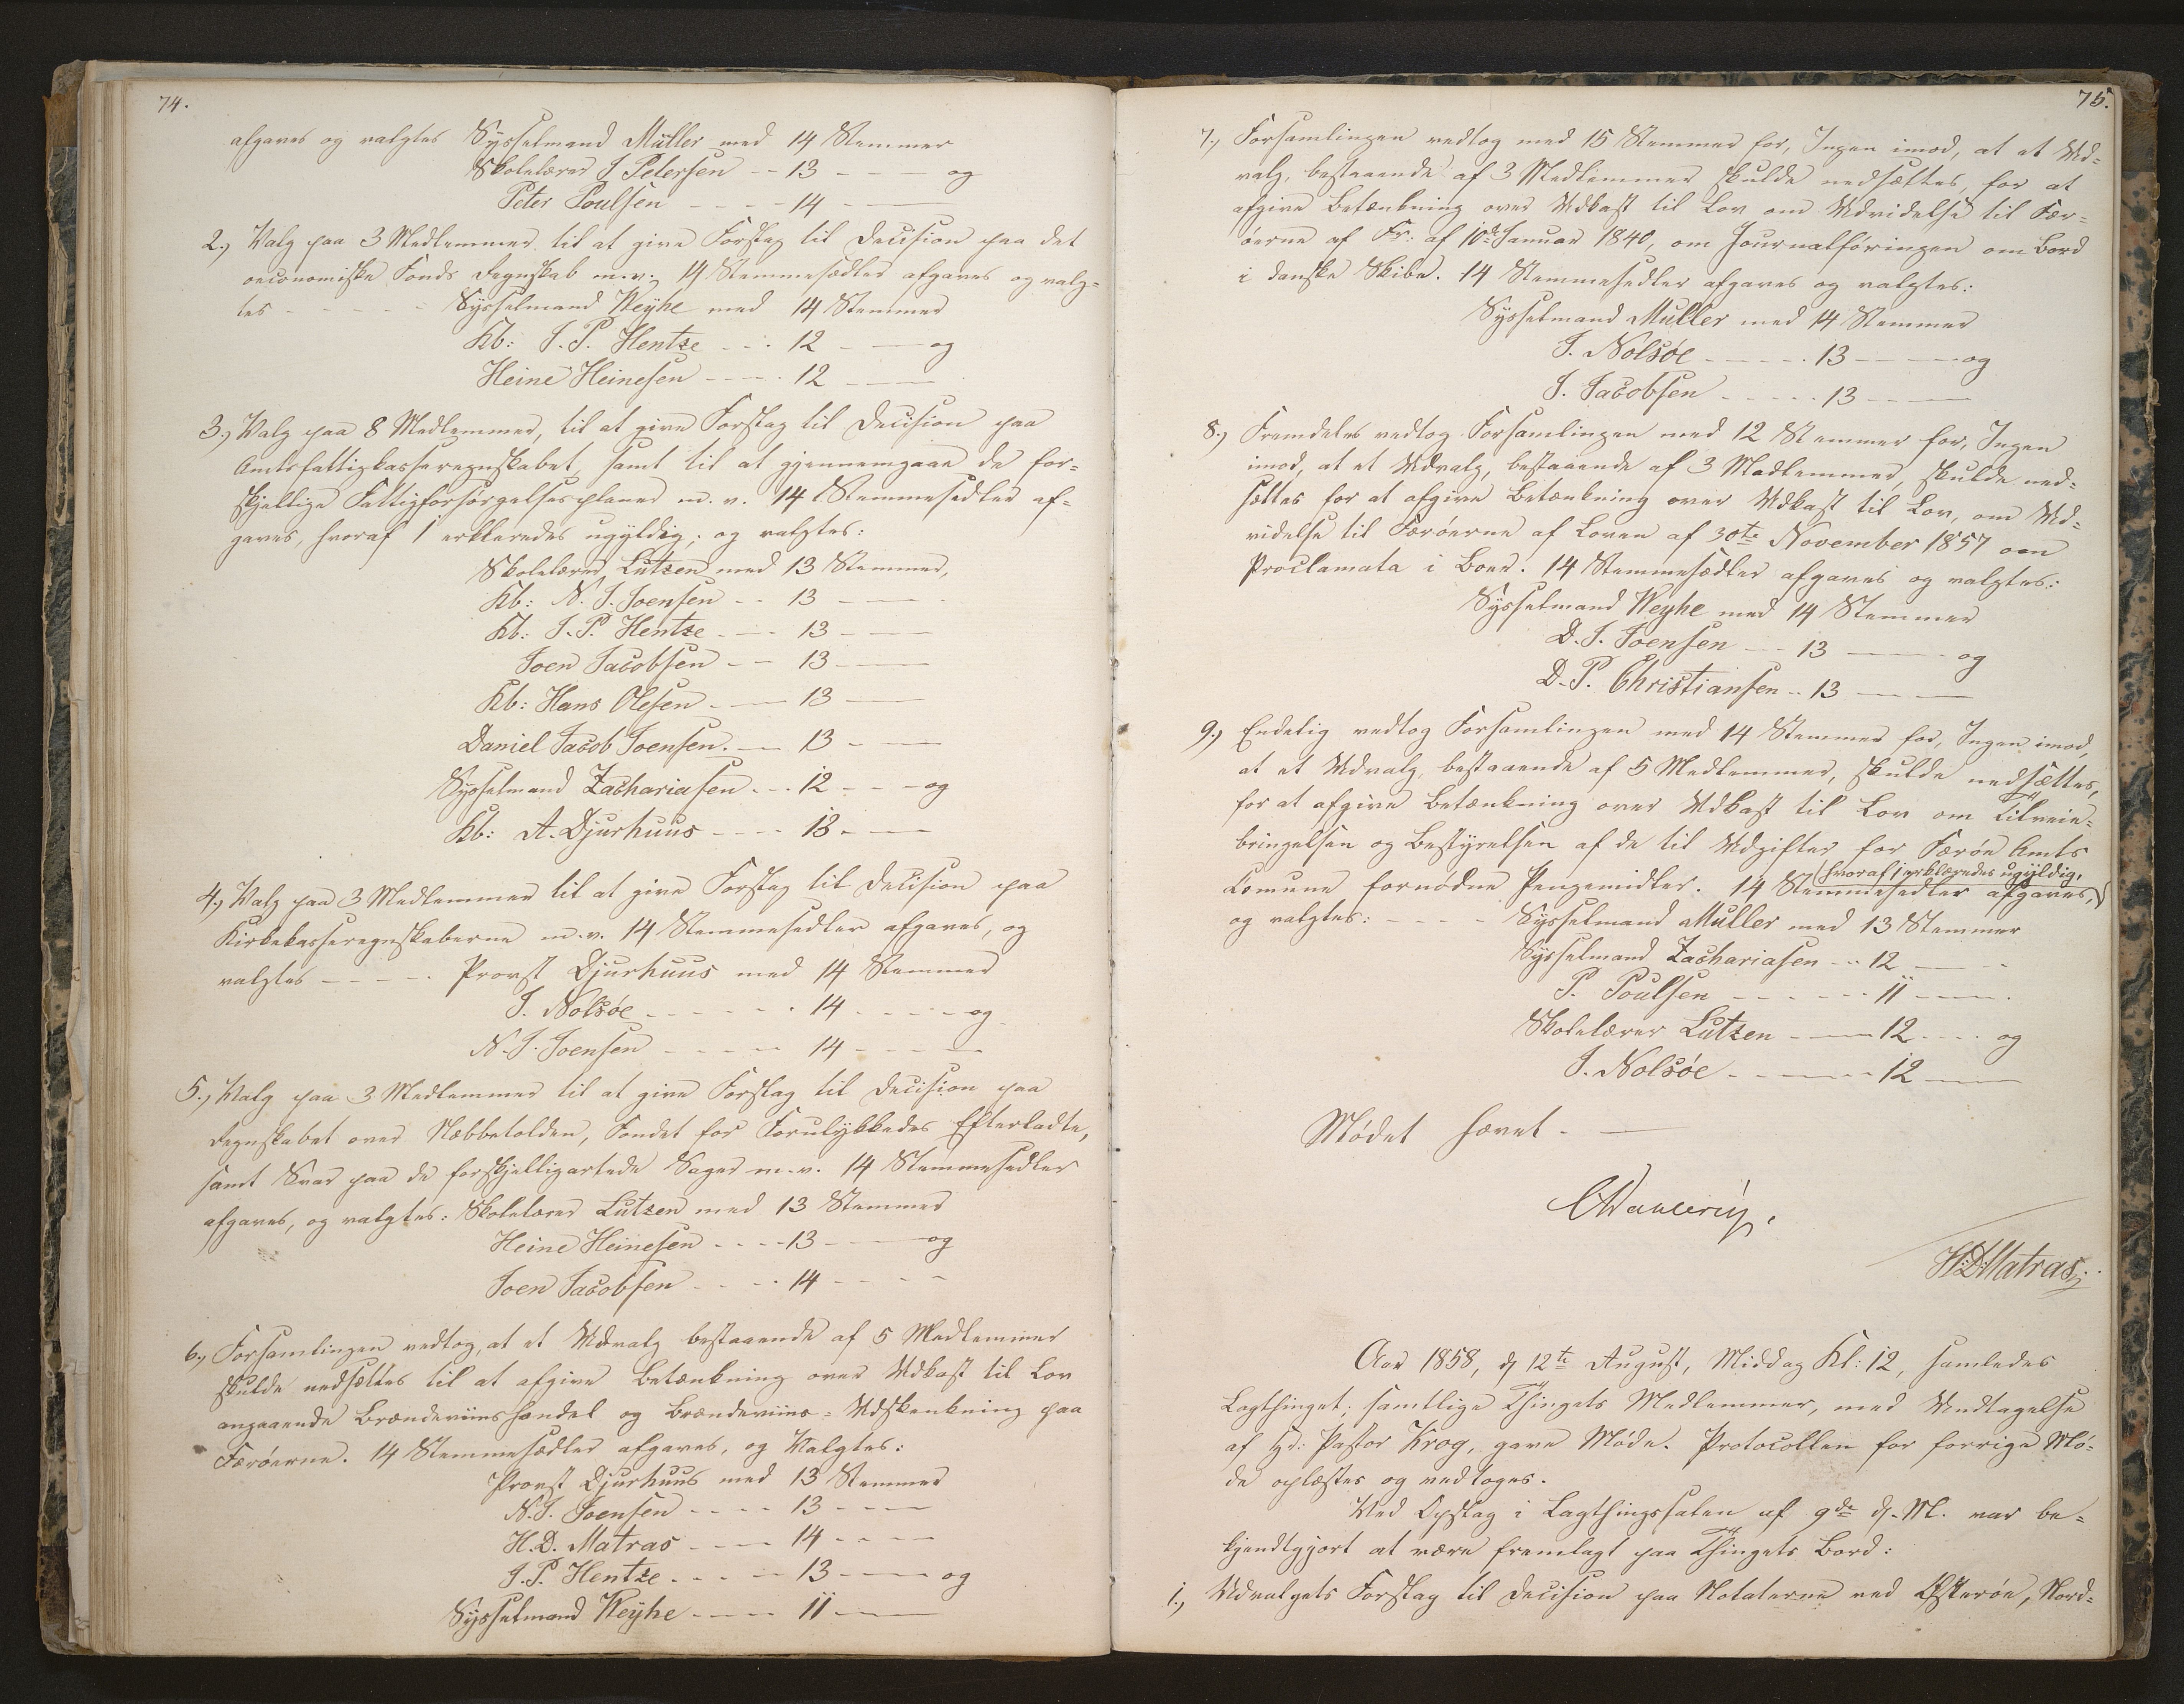 74.
afgaves og valgtes Sysselmand Müller med 14 Stemmer
Skolelærer J Petersen - - 13 - - - og
Peter Poulsen - - - - 14 - —
2., Valg paa 3 Medlemmer til at give Forslag til Decision paa det
oeconomiske Fonds Regnskab m.v. 14 Stemmesedler afgaves og valg=
tes - - - - - Sysselmand Weyhe med 14 Stemmer
Kb: J. P. Hentze - - - 12 - — og
Heine Heinesen - - - - 12 - —
3., Valg paa 8 Medlemmer, til at give Forslag til Decision paa
Amtsfattigkasseregnskabet, samt til at gjennemgaae de for=
skjellige Fattigforsørgelsesplaner m. v. 14 Stemmesedler af=
gaves, hvoraf 1 erklæredes ugyldig; og valgtes:
Skolelærer Lützen med 13 Stemmer,
Kb: N. J. Joensen - - 13 - — -
Kb: J. P. Hentze - - - 13 - —
Joen Jacobsen - - 13 - —
Kb: Hans Olesen - — 13 - —
Daniel Jacob Joensen. — 13 - —
Sysselmand Zachariasen - - 12 - - - og
Kb: A. Djurhuus - - - - 13 - —
4., Valg paa 3 Medlemmer til at give Forslag til Decision paa
Kirkekasseregnskaberne m.v. 14 Stemmesedler afgaves, og
valgtes - - - - Provst Djurhuus med 14 Stemmer
J. Nolsöe - - - - - - 14 - - - - og
N. J. Joensen - - - - - 14 - - - —
5., Valg paa 3 Medlemmer til at give Forslag til Decision paa
Regnskabet over Næbbetolden, Fondet for Forulykkedes Efterladte,
samt Svar paa de forskjelligartede Sager m.v. 14 Stemmesedler
afgaves, og valgtes: Skolelærer Lützen med 13 Stemmer
Heine Heinesen - - - - 13 - — og
Joen Jacobsen - - - - 14 - - - -
6., Forsamlingen vedtog, at et Udvalg bestaaende af 5 Medlemmer
skulde nedsættes til at afgive Betænkning over Udkast til Lov
angaaende Brændeviinshandel og Brændeviins-Udskænkning paa
Færöerne. 14 Stemmesedler afgaves, og Valgtes:
Provst Djurhuus med 13 Stemmer
N. J. Joensen - - - - 13 - - —
H. D. Matras - - - - 14 - - - -
J. P. Hentze - - - - 13 - — og
Sysselmand Weyhe - - - - 11 - —
75.
7., Forsamlingen vedtog med 15 Stemmer for, Ingen imod, at et Ud=
valg, bestaaende af 3 Medlemmer skulde nedsættes, for at
afgive Betænkning over Udkast til Lov om Udvidelse til Fær=
öerne af Fr: af 10de Januar 1840, om Journalføringen om Bord
i danske Skibe. 14 Stemmesedler afgaves og valgtes:
Sysselmand Müller med 14 Stemmer
J. Nolsöe - - - - - 13 - — og
J. Jacobsen - - - - - 13 - - —
8., Fremdeles vedtog Forsamlingen med 12 Stemmer for, Ingen
imod, at et Udvalg, bestaaende af 3 Medlemmer, skulde ned=
sættes for at afgive Betænkning over Udkast til Lov, om Ud=
videlse til Færöerne af Loven af 30te November 1857 om
Proclamata i Boer. 14 Stemmesedler afgaves og valgtes:
Sysselmand Weyhe med 14 Stemmer
D. J. Joensen - - 13 - — og
D. P. Christiansen - - 13 - —
9., Endelig vedtog Forsamlingen med 14 Stemmer for, Ingen imod,
at et Udvalg, bestaaende af 5 Medlemmer, skulde nedsættes,
for at afgive Betænkning over Udkast til Lov om Tilveie=
bringelsen og Bestyrelsen af de til Udgifter for Færöe Amts
Comune fornødne Pengemidler. 14 Stemmesedler afgaves, (hvoraf 1 erklæredes ugyldig,)
og valgtes: - - - - Sysselmand Müller med 13 Stemmer
Sysselmand Zachariasen - - 12 - —
P. Poulsen - - - - - - 11 - —
Skolelærer Lützen - — 12 - - - og
J. Nolsöe - - — - 12 - —
Mødet hævet. —
CDaulerig.
H:D:Matras
Aar 1858, d. 12te August, Middag Kl: 12, samledes
Lagthinget; samtlige Thingets Medlemmer, med Undtagelse
af Hr: Pastor Krog, gave Møde. Protocollen for forrige Mø=
de oplæstes og vedtoges.
Ved Opslag i Lagthingssalen af 9de d. M. var be=
kjendtgjort at være fremlagt paa Thingets Bord:
1., Udvalgets Forslag til Decision paa Notaterne ved Østerøe, Nord=